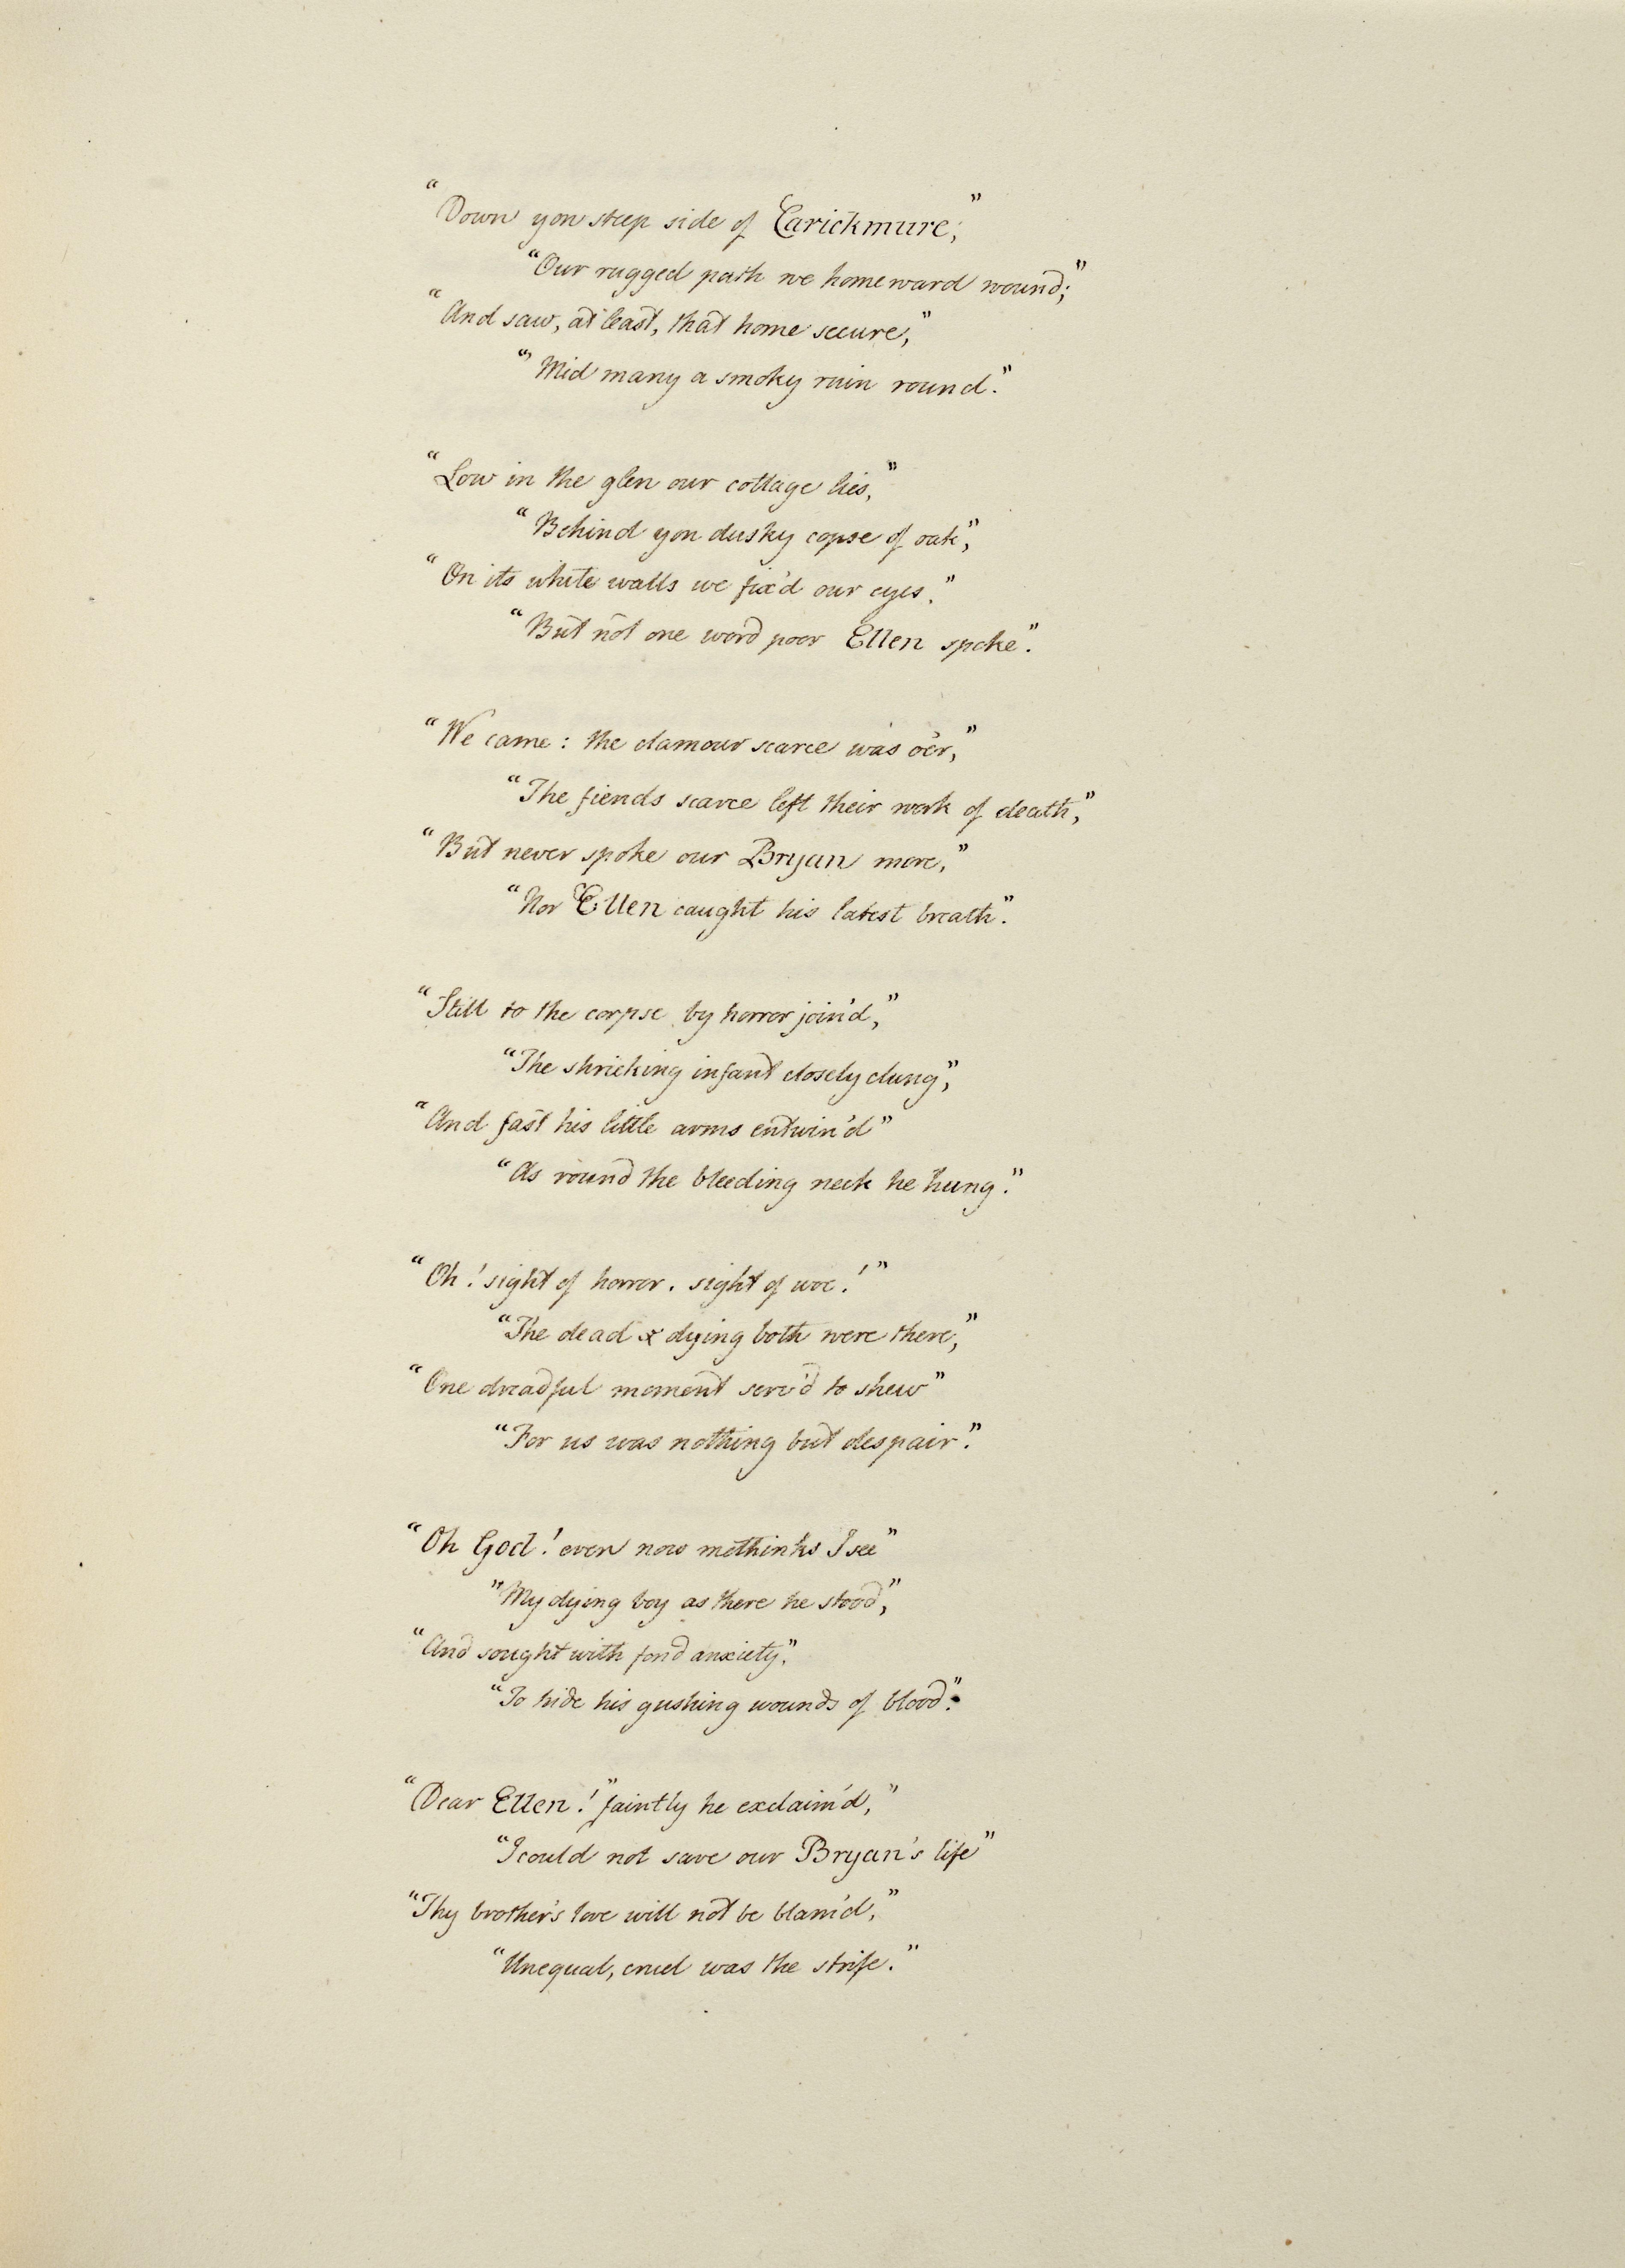 “Down yon steep side of Carickmure;”
“Our rugged path we homeward wound;”
“And saw, at least, that home secure,”
“'Mid many a smoky ruin round.”
“Low in the glen our cottage lies,”
“Behind yon dusky copse of oak,”
“On its white walls we fix'd our eyes.”
“But not one word poor Ellen spoke.”
“We came: the clamour scarce was o'er,”
“The fiends scarce left their work of death,”
“But never spoke our Bryan more,”
“Nor Ellen caught his latest breath.”
“Still to the corpse by horror join'd,”
“The shrieking infant closely clung,”
“And fast his little arms entwin'd”
“As round the bleeding neck he hung.”
“Oh! sight of horror. sight of woe!”
“The dead & dying both were there,”
“One dreadful moment serv'd to shew”
“For us was nothing but despair.”
“Oh God! even now methinks I see”
”My dying boy as there he stood,”
“And sought with fond anxiety,”
“To hide his gushing wounds of blood.”
“Dear Ellen!” faintly he exclaim'd,”
“I could not save our Bryan's life”
“Thy brother's love will not be blam'd,”
“Unequal, cruel was the strife.”